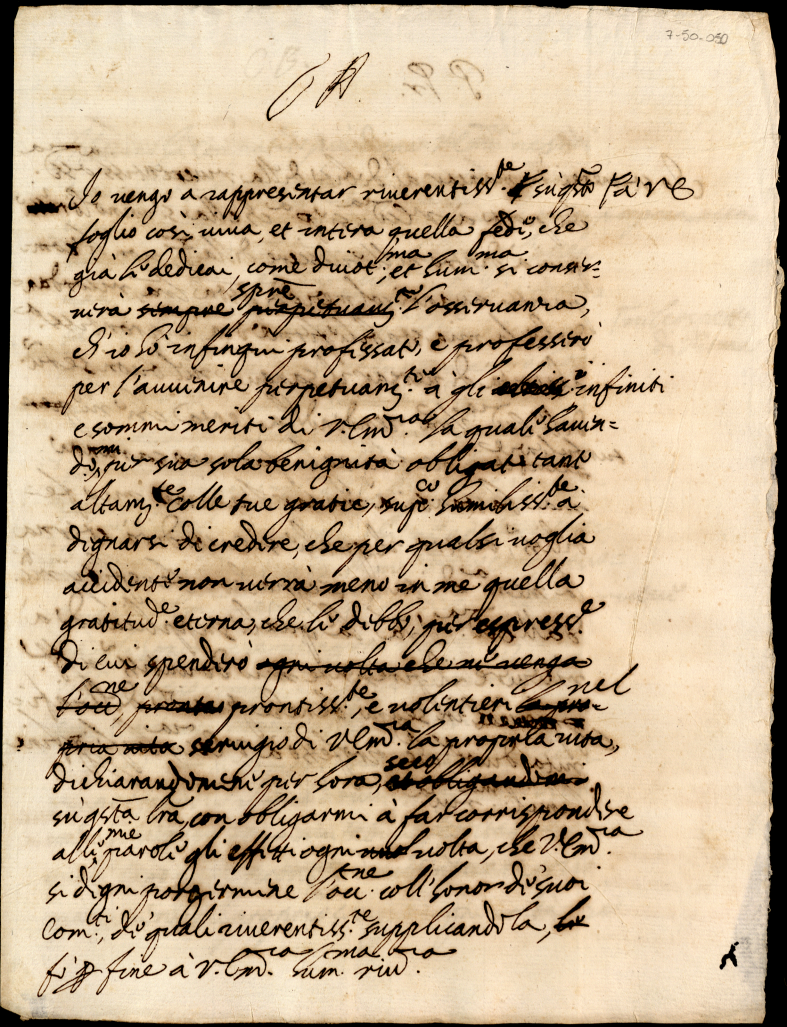 7-50-050
Io vengo a rappresentar riverentiss.te su q.sto
foglio così viva, et intera quella fede, che
già le dedicai, come divot.ma, et hum.ma si conser=
verà sempre spre perpetuam.te l'osservanza,
ch'io hò infin qui professato, e professerò
per l'avvenire perpetuam.te à gli infiniti
e sommi meriti di V. Em.za la quale haven=
do mi per sua sola benignità obligat tant
altam.te colle sue gratie, sup.co humiliss.te à
dignarsi di credere, che per qualsivoglia
accidente non verrà meno in me quella
gratitud.e eterna, che le debbo, per espress.e
di cui spenderò ogni volta che ne venga
l'occ.ne, pronta prontiss.te, e volentieri la pro= nel
pria vita servigio di V. Em.za la propria vita,
dichiarandomene per hora, seco et obligandomi
sù q.sta l.ra, con obligarmi à far corrispondere
alle mie parole gli effetti ogni volta, che V. Em.za
si degni porgermene l'occ.ne coll'honor de' suoi
com.ti, de' quali riverentiss.te supplicandola, le
fò fine à V. Em.za hum.ma riv.za